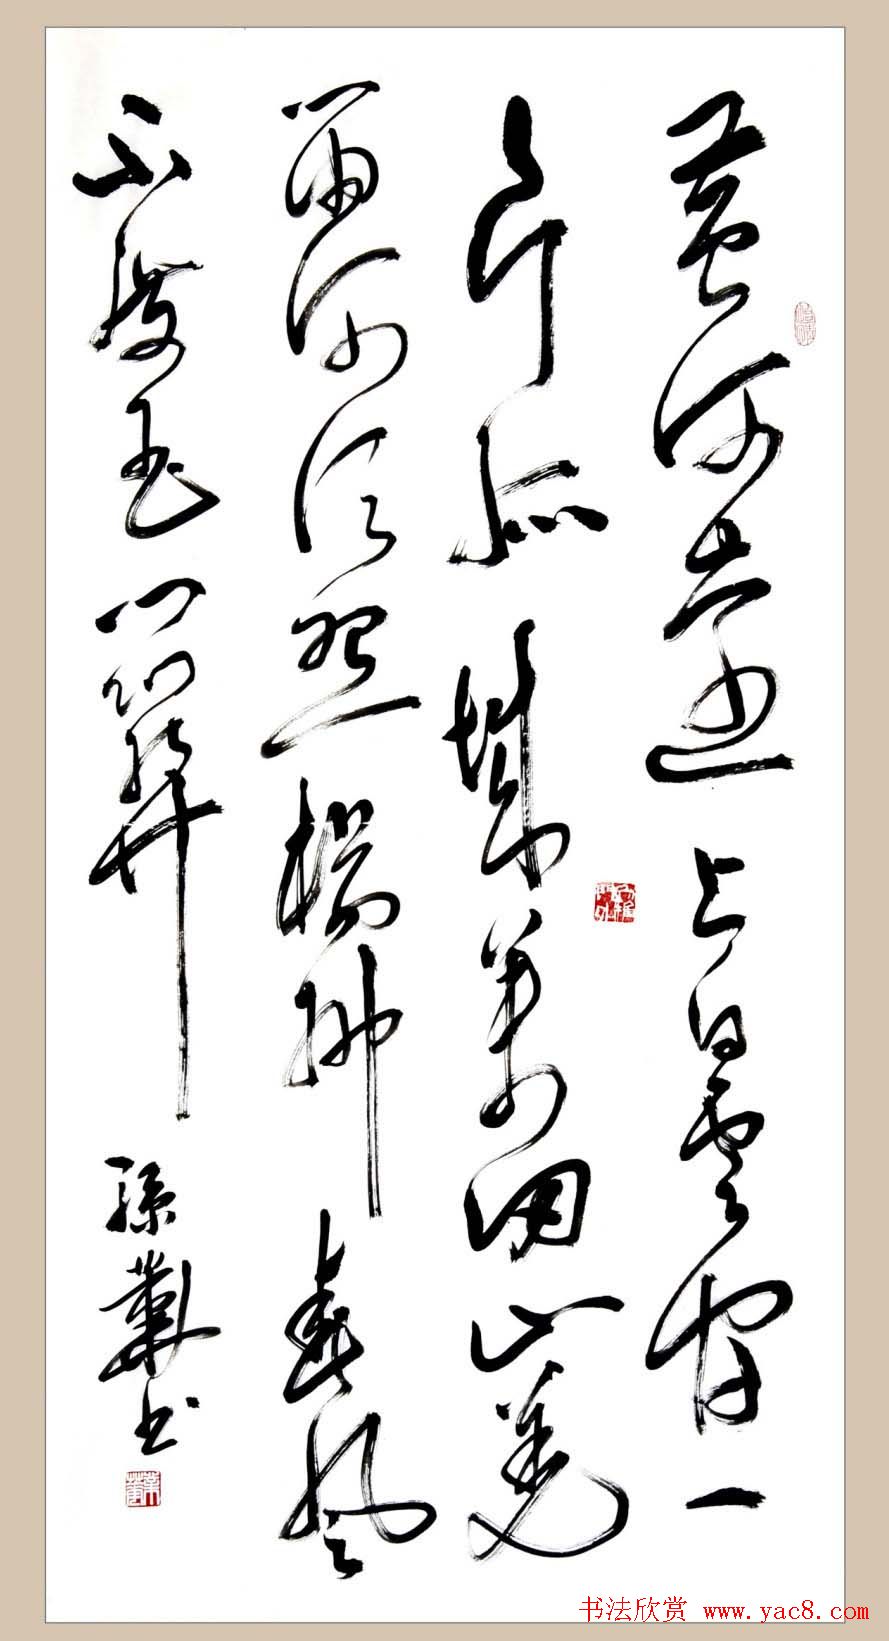 黄河遠上白雲间一
片孤城萬仞山羌
笛何须怨楊柳春風
不度玉门關
孫 书
书法欣赏 www.yac8.com